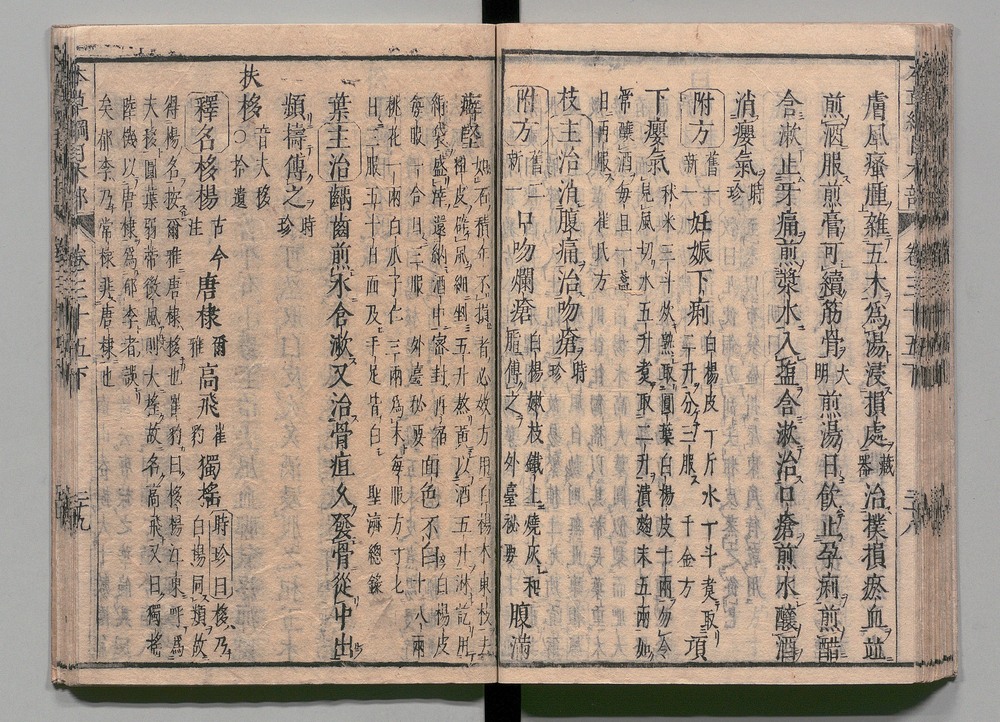 膚風瘙腫雜五木爲湯浸損處藏器治撲損瘀血並
煎酒服煎膏可續筋骨大明煎湯日飲止孕痢煎醋
含漱止牙痛煎漿水入鹽含漱治口瘡煎水釀酒
消癭氣時珍
附方舊一新一妊娠下痢白楊皮一斤水一斗煑取二升分三服千金方項
下癭氣秋米三斗炊熟取圓葉白楊皮十兩勿令見風切水五升煑取二升漬麴末五兩如
常釀酒每旦一盞日再服崔氏方
枝主治消腹痛治吻瘡時珍
附方舊二新一口吻爛瘡白楊嫩枝鐵上燒灰和脂傅之外臺秘要腹滿
癖堅如石積年不損者必效方用白楊木東枝去粗皮辟風細剉五升熬黃以酒五升淋訖用
絹袋盛滓還納酒中密封再宿每服一合日三服外臺秘要面色不白白楊皮十八兩
桃花一兩白瓜子仁三兩爲末每服方寸匕日三服五十日面及手足皆白聖濟總錄
葉主治齲齒煎水含漱又治骨疽久發骨從中出
頻擣傅之時珍
扶栘音夫移〇拾遺
釋名栘楊古今注唐棣爾雅高飛崔豹獨搖時珍曰栘乃白楊同類故
得楊名按爾雅唐棣栘也崔豹曰栘楊江東呼爲
夫栘圓葉弱蒂微風則大搖故名高飛又曰獨搖
陸機以唐棣爲郁李者誤
矣郁李乃常棣非唐棣也